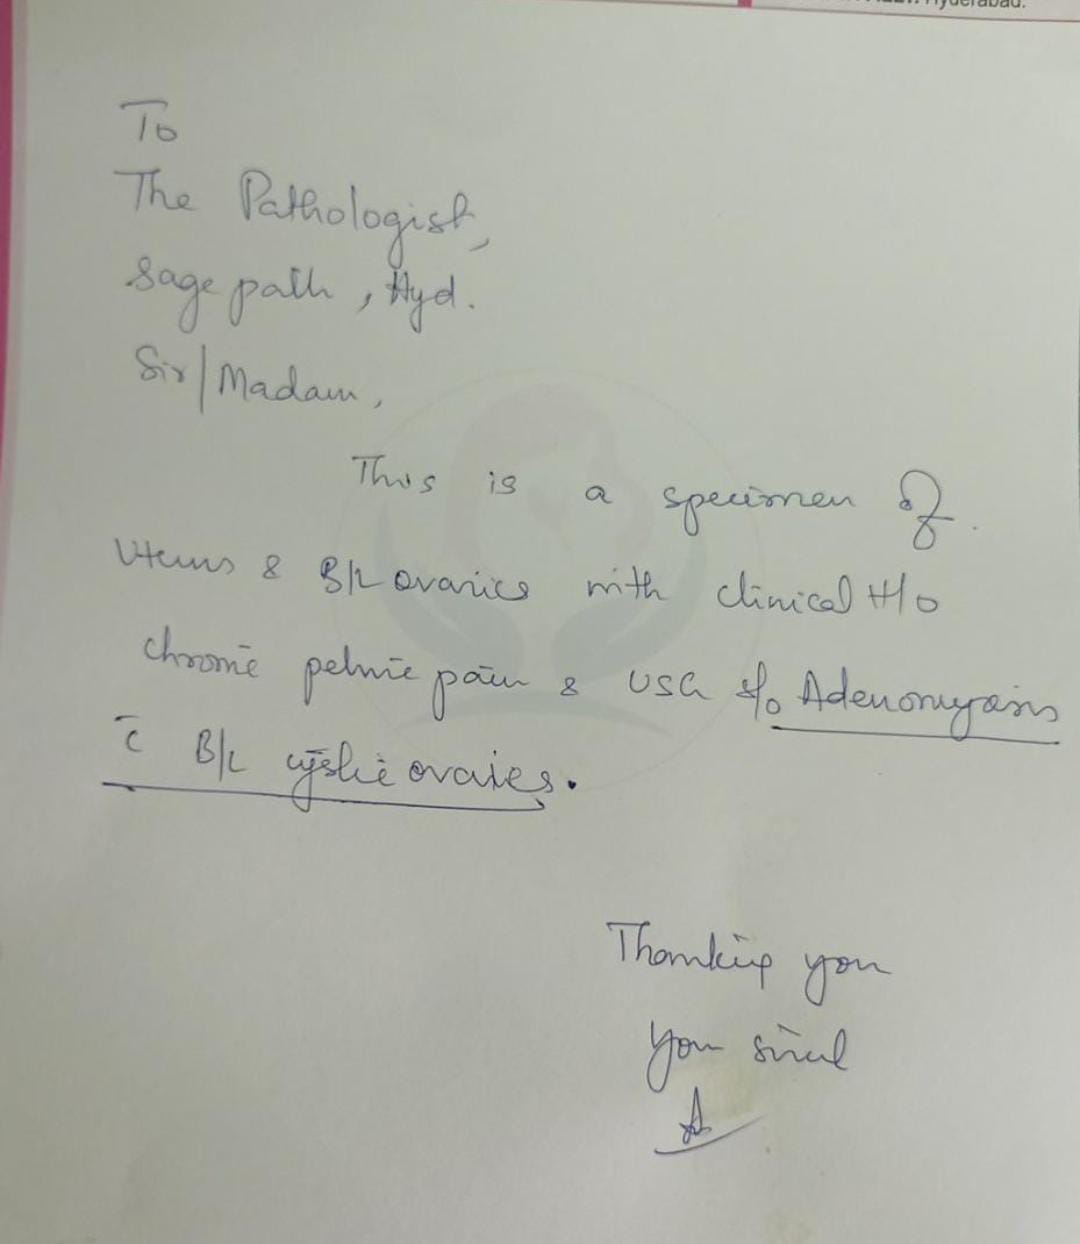 Hyderabad.
To
The Pathologist,
Sage path, Hyd.
Sir/Madam,
This is a specimen of
Uterus & B/L ovaries with clinical H/o
chronic pelvic pain & USG s/o Adenomyosis
c̄ B/L cystic ovaries.
Thanking you